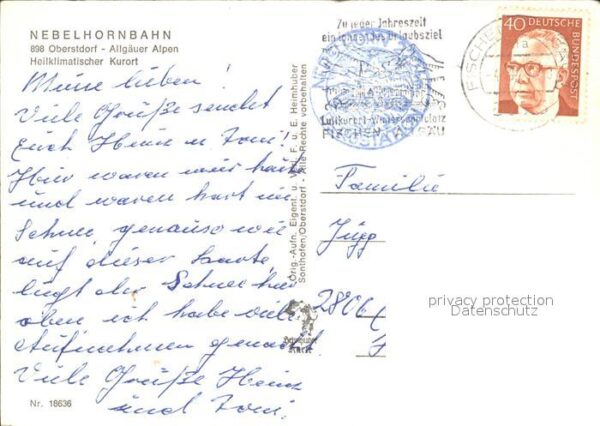 NEBELHORNBAHN
898 Oberstdorf - Allgäuer Alpen
Heilklimatischer Kurort
Meine lieben!
Viele Grüße sendet
Euch Heinz u Toni!
Hier waren wir
und waren hart im
Schnee genauso wie
auf dieser Karte,
liegt der Schnee hier
oben ich habe viele
Aufnahmen gemacht
Viele Grüße Heinz
und Toni.
Nr. 16636
Orig.-Aufn. Eigent. u. Verl. F. u. E. Heimhuber
Sonthofen/Oberstdorf - Alle Rechte vorbehalten
Heimhuber
Zu jeder Jahreszeit
ein lohnendes Urlaubsziel
Luftkurort - Wintersportplatz
FISCHEN
FISCHEN
40 DEUTSCHE
BUNDESPOST
Familie
Jügg
2806
privacy protection
Datenschutz